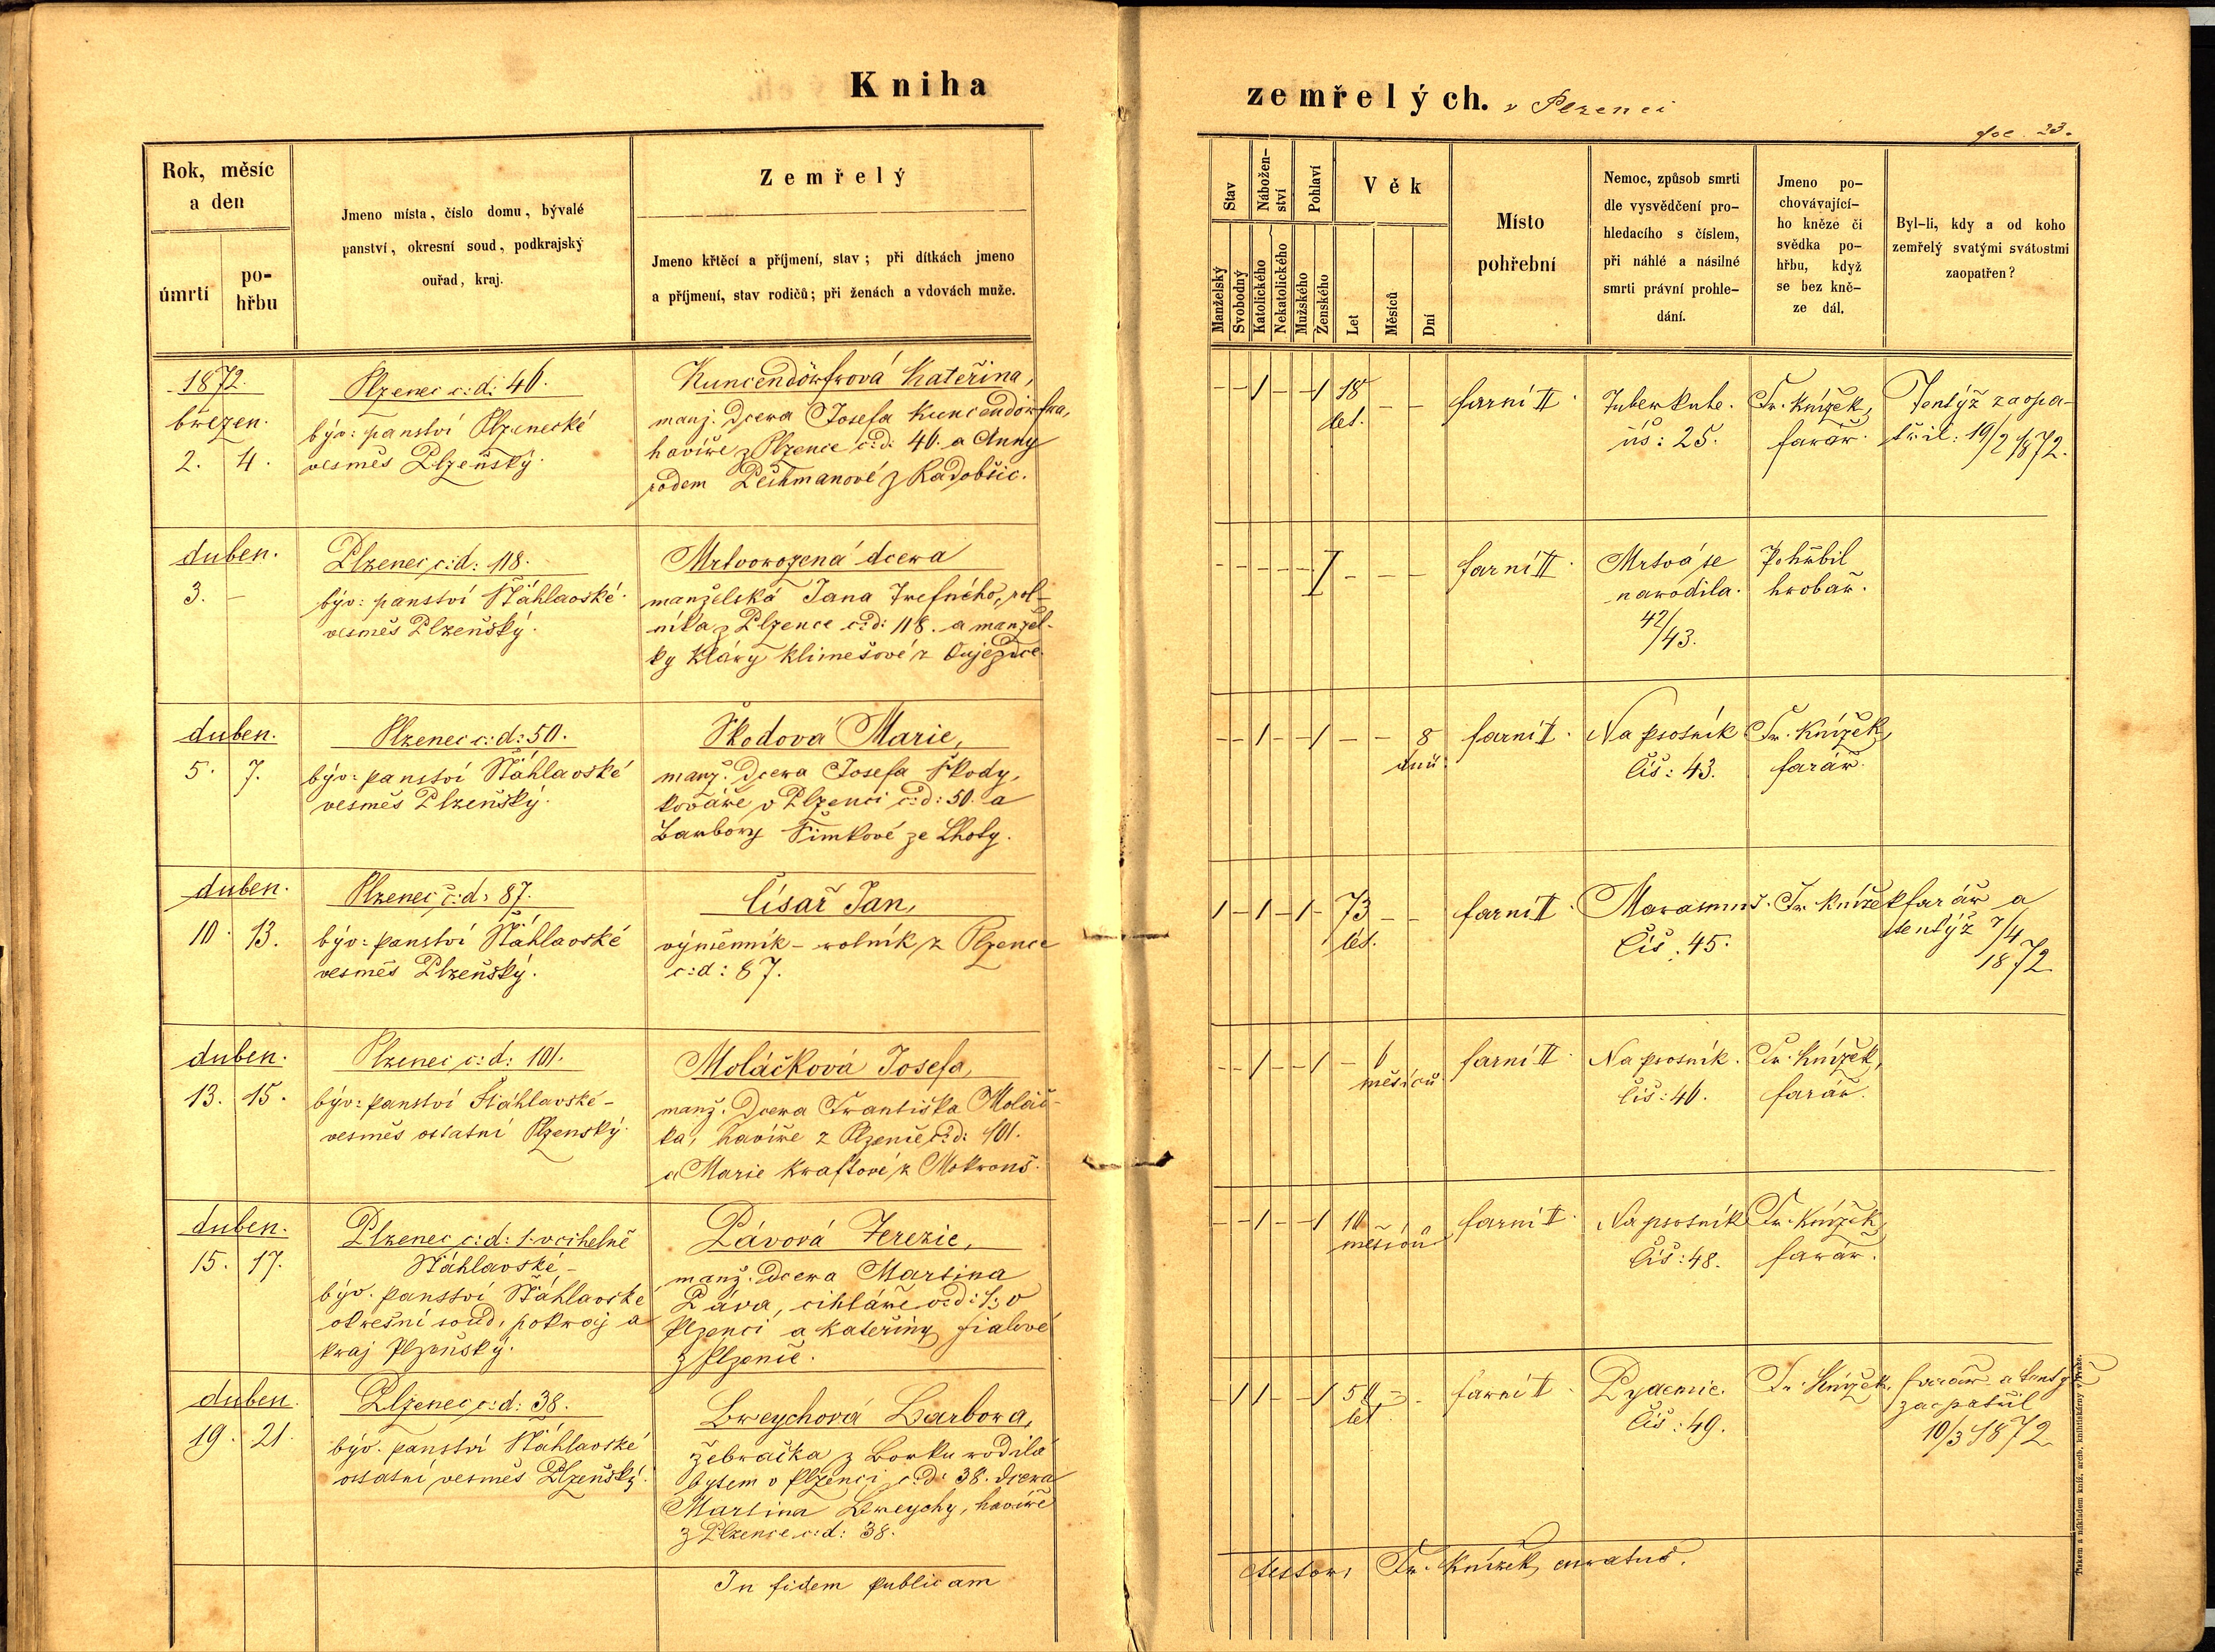 Kniha
zemřelých. v Plzenci
fol. 23.
Rok, měsíc
a den
úmrtí
po-
hřbu
Jmeno místa, číslo domu, bývalé
panství, okresní soud, podkrajský
ouřad, kraj.
Zemřelý
Jmeno křtěcí a příjmení, stav; při dítkách jmeno
a příjmení, stav rodičů; při ženách a vdovách muže.
Stav
Nábožen-
ství
Pohlaví
Věk
Manželský
Svobodný
Katolického
Nekatolického
Mužského
Ženského
Let
Měsíců
Dní
Místo
pohřební
Nemoc, způsob smrti
dle vysvědčení pro-
hledacího s číslem,
při náhlé a násilné
smrti právní prohle-
dání.
Jmeno po-
chovávající-
ho kněze či
svědka po-
hřbu, když
se bez kně-
ze dál.
Byl-li, kdy a od koho
zemřelý svatými svátostmi
zaopatřen?
1872.
březen.
2. 4.
Plzenec č:d: 46.
býv: panství Plzenecké
vesměs Plzeňský.
Kuncendörfrová Kateřina,
manž. dcera Josefa Kuncendörfra,
havíře z Plzence č:d: 46. a Anny
rodem Pechmanové z Radobčic.
- - 1 - - 1 18 - -
let.
farní II.
Tuberkule.
čís: 25.
Fr. Knížek,
farář.
Tentýž zaopa-
třil: 19/2 1872.
duben.
3. -
Plzenec č:d: 118.
býv: panství Šťáhlavské.
vesměs Plzeňský.
Mrtvorozená dcera
manželská Jana Trefného, rol-
níka z Plzence č:d: 118. a manžel-
ky Kláry Klimešové z Oujezdce.
- - - - - I - - -
farní II.
Mrtvá se
narodila.
42/43.
Pohřbil
hrobař.
duben.
5. 7.
Plzenec č:d: 50.
býv: panství Šťáhlavské
vesměs Plzeňský.
Škodová Marie,
manž. dcera Josefa Škody,
kováře v Plzenci č:d: 50. a
Barbory Šimkové ze Lhoty.
- - 1 - - 1 - - 8
dnů.
farní II.
Na psotník
čís: 43.
Fr. Knížek,
farář.
duben.
10. 13.
Plzenec č:d: 87.
býv: panství Šťáhlavské
vesměs Plzeňský.
Císař Jan,
výměnník - rolník z Plzence
č:d: 87.
1 - 1 - 1 - 73 - -
let.
farní II.
Marasmus.
Čís: 45.
Fr. Knížek farář a
tentýž 7/4
1872
duben.
13. 15.
Plzenec č:d: 101.
býv: panství Šťáhlavské -
vesměs ostatní Plzenský.
Moláčková Josefa,
manž. dcera Františka Moláč-
ka, havíře z Plzence č:d: 101.
a Marie Kraftové z Mokrouš.
- - 1 - - 1 - 6
měsíců.
farní II.
Na psotník.
čís: 46.
Fr. Knížek,
farář.
duben.
15. 17.
Plzenec č:d: 1. v cihelně
Šťáhlavské -
býv. panství Šťáhlavské
okresní soud, pokraj a
kraj Plzeňský.
Pávová Terezie,
manž. dcera Martina
Páva, cihláře č:d: 1. v
Plzenci a Kateřiny Fialové
z Plzence.
- - 1 - - 1 10
měsíců
farní II.
Na psotník
čís: 48.
Fr. Knížek,
farář.
duben.
19. 21.
Plzenec č:d: 38.
býv. panství Šťáhlavské
ostatní vesměs Plzeňský.
Breychová Barbora,
žebračka z Borku rodilá
bytem v Plzenci č:d: 38. dcera
Martina Breychy, havíře
z Plzence č:d: 38.
- 1 1 - - 1 50 - -
let.
farní II.
Pyaemie.
Čís: 49.
Fr. Knížek, farář a tentýž
zaopatřil
10/3 1872
In fidem publicam
testor, Fr. Knížek, curatus.
Tiskem a nákladem kníž. arcib. knihtiskárny v Praze.